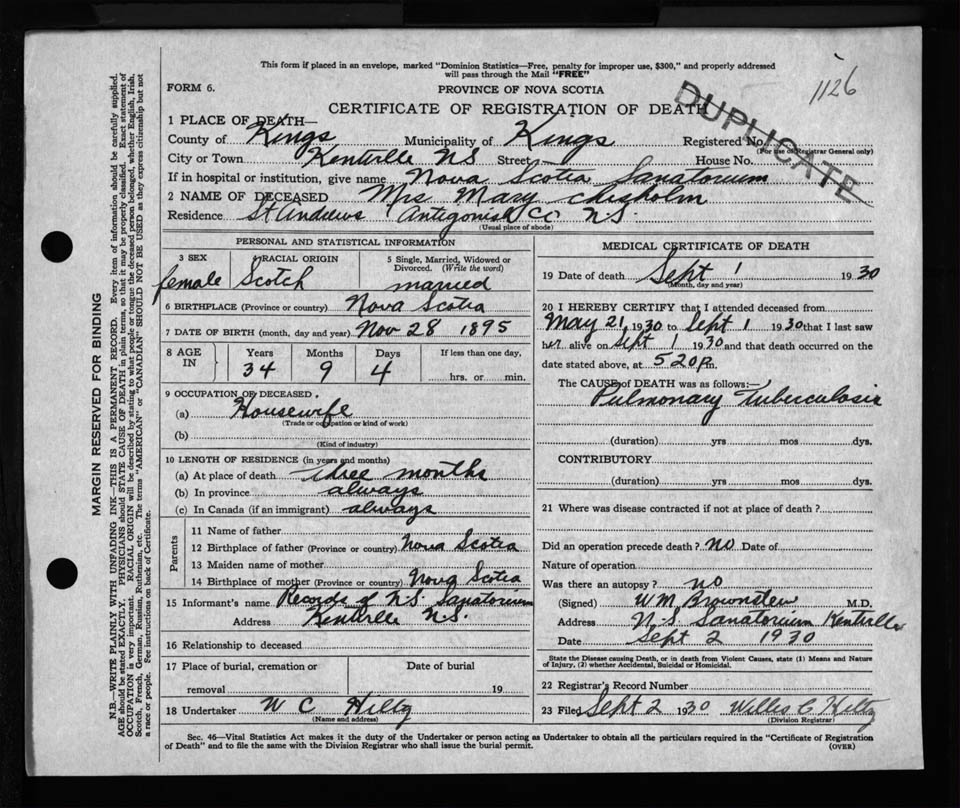 This form if placed in an envelope, marked "Dominion Statistics—Free, penalty for improper use, $300," and properly addressed
will pass through the Mail "FREE"
FORM 6.
PROVINCE OF NOVA SCOTIA
1126
CERTIFICATE OF REGISTRATION OF DEATH
DUPLICATE
1 PLACE OF DEATH—
County of Kings Municipality of Kings Registered No.
(For use of Registrar General only)
City or Town Kentville NS Street House No.
If in hospital or institution, give name Nova Scotia Sanatorium
2 NAME OF DECEASED Mrs Mary Chisholm
Residence St Andrews Antigonish Co NS.
(Usual place of abode)
PERSONAL AND STATISTICAL INFORMATION
3 SEX RACIAL ORIGIN 5 Single, Married, Widowed or
Divorced. (Write the word)
female Scotch married
6 BIRTHPLACE (Province or country) Nova Scotia
7 DATE OF BIRTH (month, day and year) Nov 28 1895
8 AGE IN Years Months Days If less than one day,
34 9 4 hrs. or min.
9 OCCUPATION OF DECEASED.
(a) Housewife
(Trade or occupation or kind of work)
(b)
(Kind of industry)
10 LENGTH OF RESIDENCE (in years and months)
(a) At place of death three months
(b) In province always
(c) In Canada (if an immigrant) always
Parents
11 Name of father
12 Birthplace of father (Province or country) Nova Scotia
13 Maiden name of mother
14 Birthplace of mother (Province or country) Nova Scotia
15 Informant's name Records of N.S. Sanatorium
Address Kentville N.S.
16 Relationship to deceased
17 Place of burial, cremation or Date of burial
removal 19
18 Undertaker W C Hiltz
(Name and address)
MEDICAL CERTIFICATE OF DEATH
19 Date of death Sept 1 1930
(Month, day and year)
20 I HEREBY CERTIFY that I attended deceased from
May 21, 1930 to Sept 1 1930 that I last saw
her alive on Sept 1 1930 and that death occurred on the
date stated above, at 5 20 P.m.
The CAUSE of DEATH was as follows:—
Pulmonary Tuberculosis
(duration) yrs mos dys.
CONTRIBUTORY
(duration) yrs mos dys.
21 Where was disease contracted if not at place of death?
Did an operation precede death? no Date of
Nature of operation
Was there an autopsy? no
(Signed) WM M.D.
Address N-S Sanatorium Kentville
Date Sept 2 1930
State the Disease causing Death, or in death from Violent Causes, state (1) Means and Nature
of Injury, (2) whether Accidental, Suicidal or Homicidal.
22 Registrar's Record Number
23 Filed Sept 2 1930 Willis C Hiltz
(Division Registrar)
Sec. 46—Vital Statistics Act makes it the duty of the Undertaker or person acting as Undertaker to obtain all the particulars required in the "Certificate of Registration
of Death" and to file the same with the Division Registrar who shall issue the burial permit.
(OVER)
MARGIN RESERVED FOR BINDING
N.B.—WRITE PLAINLY WITH UNFADING INK—THIS IS A PERMANENT RECORD. Every item of information should be carefully supplied.
AGE should be stated EXACTLY. PHYSICIANS should STATE CAUSE OF DEATH in plain terms, so that it may be properly classified. Exact statement of
OCCUPATION is very important. RACIAL ORIGIN will be described by stating to what people or tongue the deceased person belonged, whether English, Irish,
Scotch, French, German, Russian, Ruthenian, etc. The terms "AMERICAN" or "CANADIAN" SHOULD NOT BE USED as they express citizenship but not
a race or people. See instructions on back of Certificate.